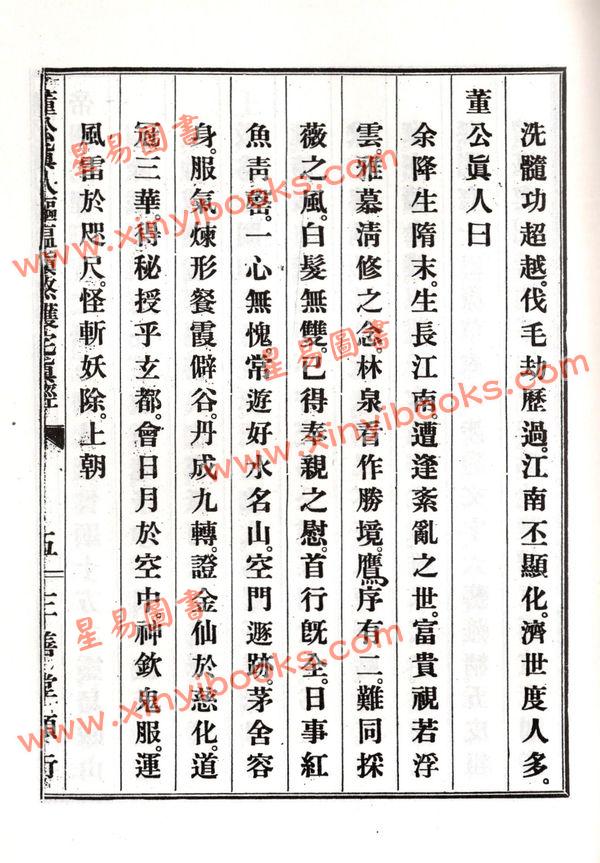 洗髓功超越。伐毛劫歷過。江南丕顯化。濟世度人多。
董公眞人曰
余降生隋末。生長江南。遭逢紊亂之世。富貴視若浮
雲。雅慕淸修之念。林泉善作勝境。鴈序有二。難同採
薇之風。白髮無雙。已得奉親之慰。首行旣全。日事紅
魚靑磬。一心無愧。常遊好水名山。空門遯跡。茅舍容
身。服氣煉形。餐霞僻谷。丹成九轉。證金仙於慈化。道
冠三華。得秘授乎玄都。會日月於空中。神欽鬼服。運
風雷於咫尺。怪斬妖除。上朝
董公眞人驅瘟鎭煞護宅眞經
五
三善堂
星易圖書
www.xinyibooks.com
星易圖書
www.xinyibooks.com
星易圖書
www.xinyibooks.com